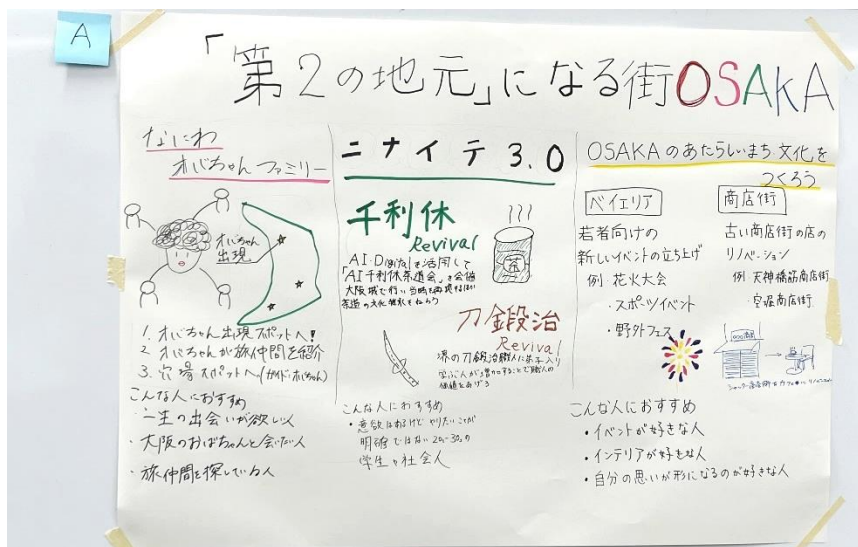 A
「第2の地元」になる街OSAKA
なにわ
オバちゃんファミリー
オバちゃん
出現
1. オバちゃん出現スポットへ!
2 オバちゃんが旅仲間を紹介
3. 穴場スポットへ(ガイド:オバちゃん)
こんな人におすすめ
・一生の出会いが欲しい人
・大阪のおばちゃんと会いたい人
・旅仲間を探している人
ニナイテ3.0
千利休
Revival
AI・Digitalを活用して
「AI千利休茶道会」を会催
大阪城で行い当時を再現
茶道の文化継承をねらう
茶
刀鍛治
Revival
堺の刀鍛治職人に弟子入り
学ぶ人が増加することで職人の
価値をあげる
こんな人におすすめ
・意欲はあるけどやりたいことが
明確ではない20〜30代の
学生や社会人
OSAKAのあたらしいまち文化を
つくろう
ベイエリア
若者向けの
新しいイベントの立ち上げ
例:花火大会
・スポーツイベント
・野外フェス
商店街
古い商店街の店の
リノベーション
例:天神橋筋商店街
・空堀商店街
こんな人におすすめ
・イベントが好きな人
・インテリアが好きな人
・自分の思いが形になるのが好きな人